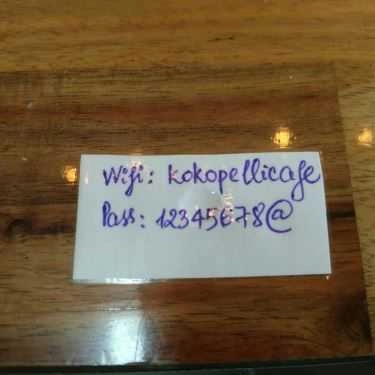 Wifi: kokopellicafe
Pass: 12345678@